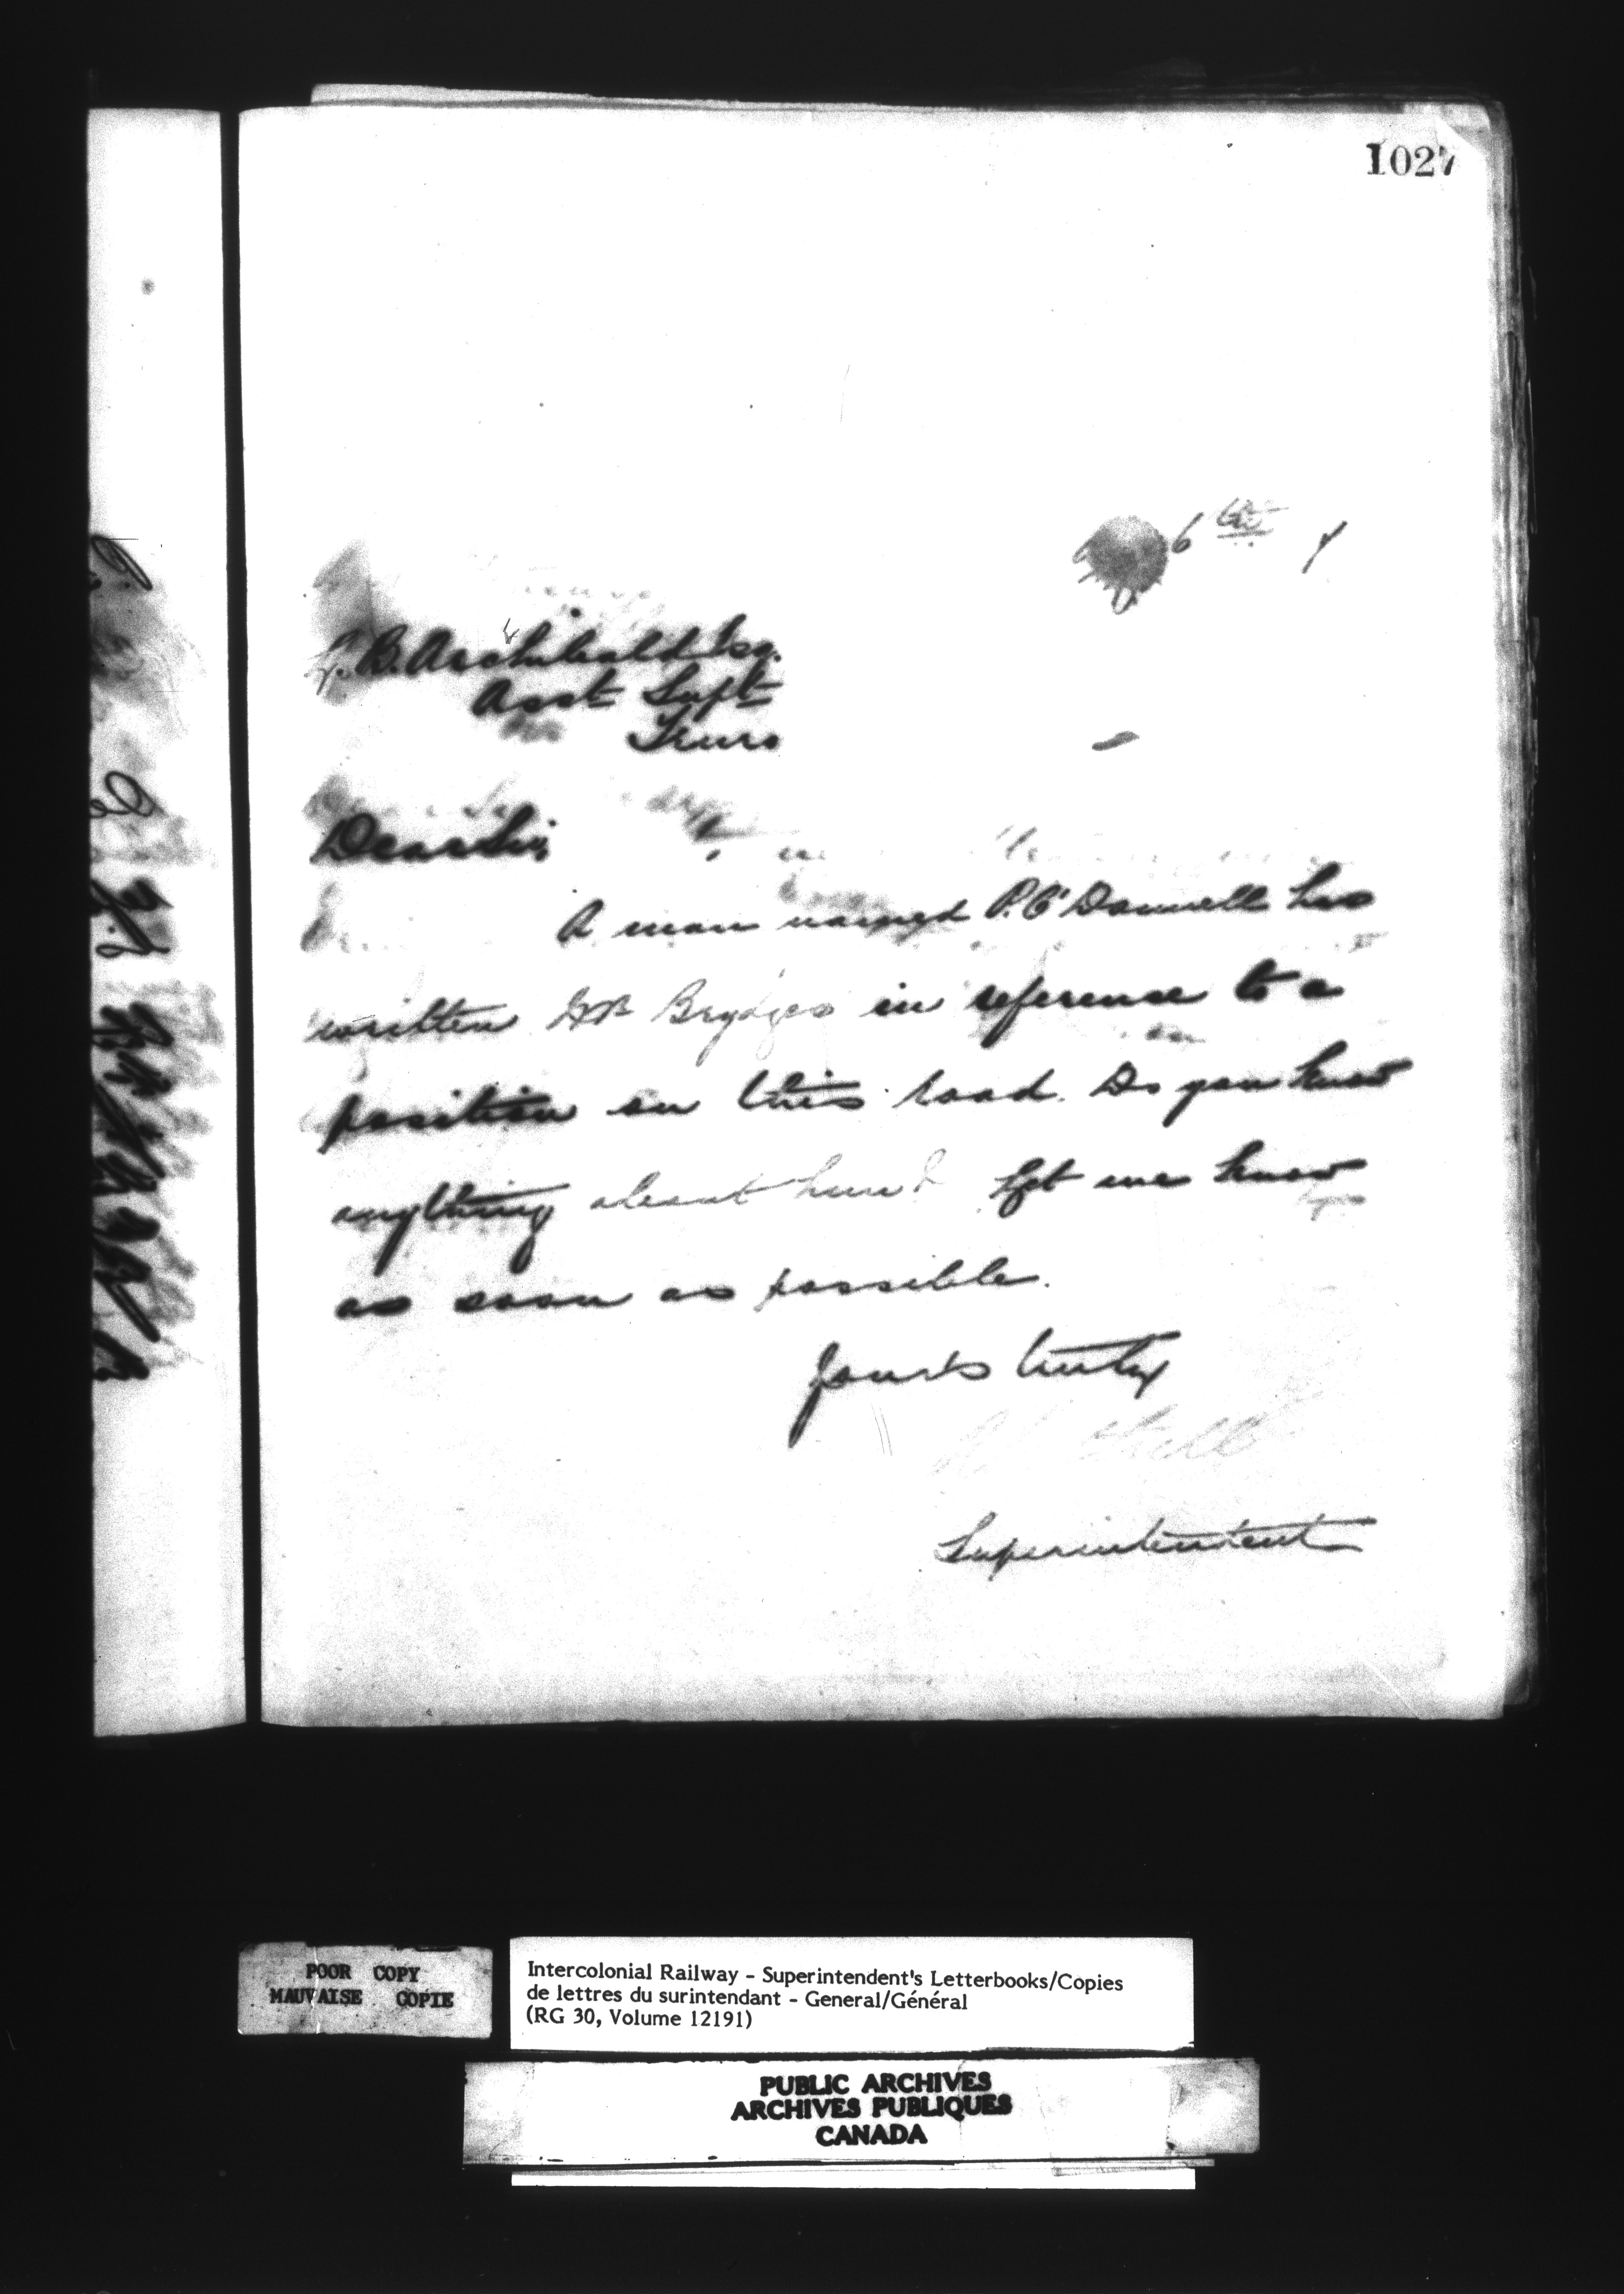 1027
6th
B. Archibald Esq.
Asst Supt
Truro
Dear Sir,
A man named P. O'Donnell has
written Mr Brydges in reference to a
position on this road. Do you know
anything about him? Let me know
as soon as possible.
Yours truly
Superintendent
POOR COPY
MAUVAISE COPIE
Intercolonial Railway - Superintendent's Letterbooks/Copies
de lettres du surintendant - General/Général
(RG 30, Volume 12191)
PUBLIC ARCHIVES
ARCHIVES PUBLIQUES
CANADA